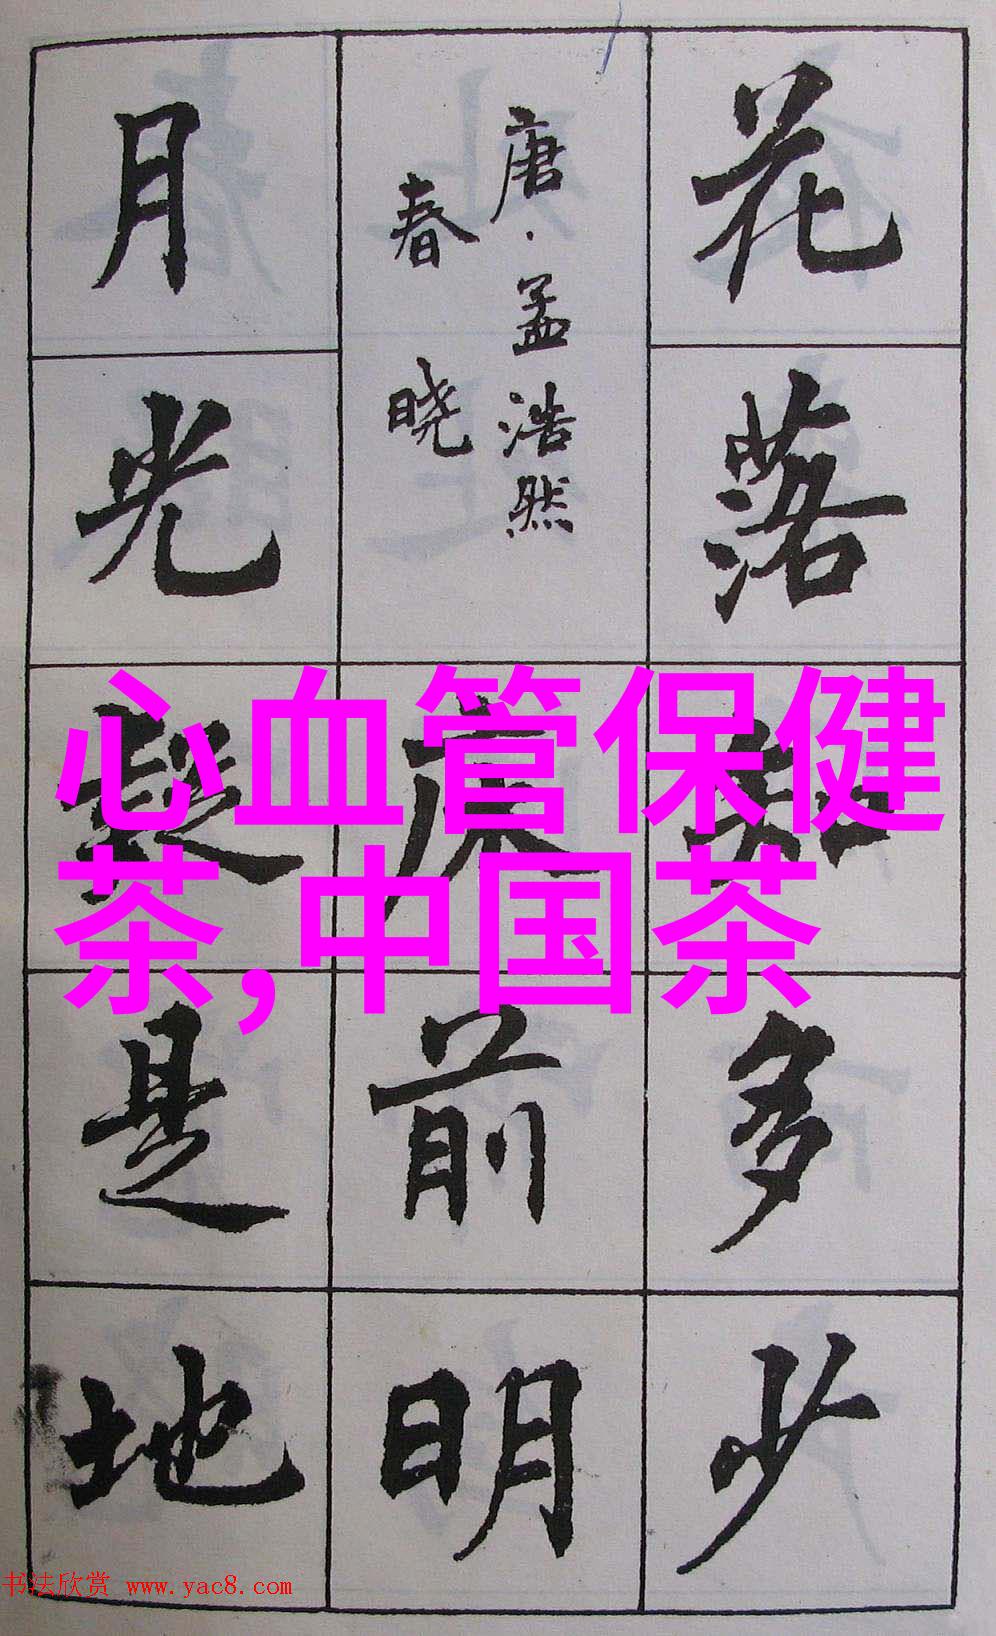 花落知多少
唐·孟浩然
春晓
床前明
月光疑是地
心血管保健
茶,中国茶
书法欣赏 www.yac8.com